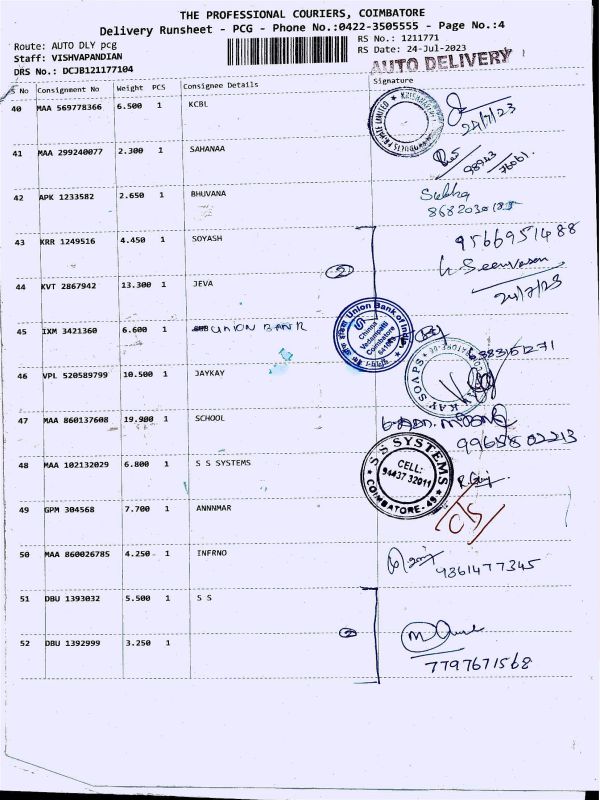 THE PROFESSIONAL COURIERS, COIMBATORE
Delivery Runsheet - PCG - Phone No.:0422-3505555 - Page No.:4
Route: AUTO DLY pcg
RS No.: 1211771
Staff: VISHVAPANDIAN
RS Date: 24-Jul-2023
DRS No.: DCJB121177104
AUTO DELIVERY
S No Consignment No Weight PCS Consignee Details Signature
40 MAA 569778366 6.500 1 KCBL
24/7/23
41 MAA 299240077 2.300 1 SAHANAA
98943
76061
42 APK 1233582 2.650 1 BHUVANA
Subha
43 KRR 1249516 4.450 1 SOYASH 9566951488
2
44 KVT 2867942 13.300 1 JEVA
24/7/23
45 IXM 3421360 6.600 1 UNION BANK
Union Bank of India
Chinna
Vedampatti
Coimbatore
6383151271
46 VPL 520589799 10.500 1 JAYKAY
KAY SOAPS
47 MAA 860137608 19.900 1 SCHOOL
9965802213
48 MAA 102132029 6.800 1 S S SYSTEMS
S S SYSTEMS
CELL:
94437 32011
COIMBATORE - 49
49 GPM 304568 7.700 1 ANNNMAR
C/S
50 MAA 860026785 4.250 1 INFRNO
9361477345
51 DBU 1393032 5.500 1 S S
2
52 DBU 1392999 3.250 1
7797671568